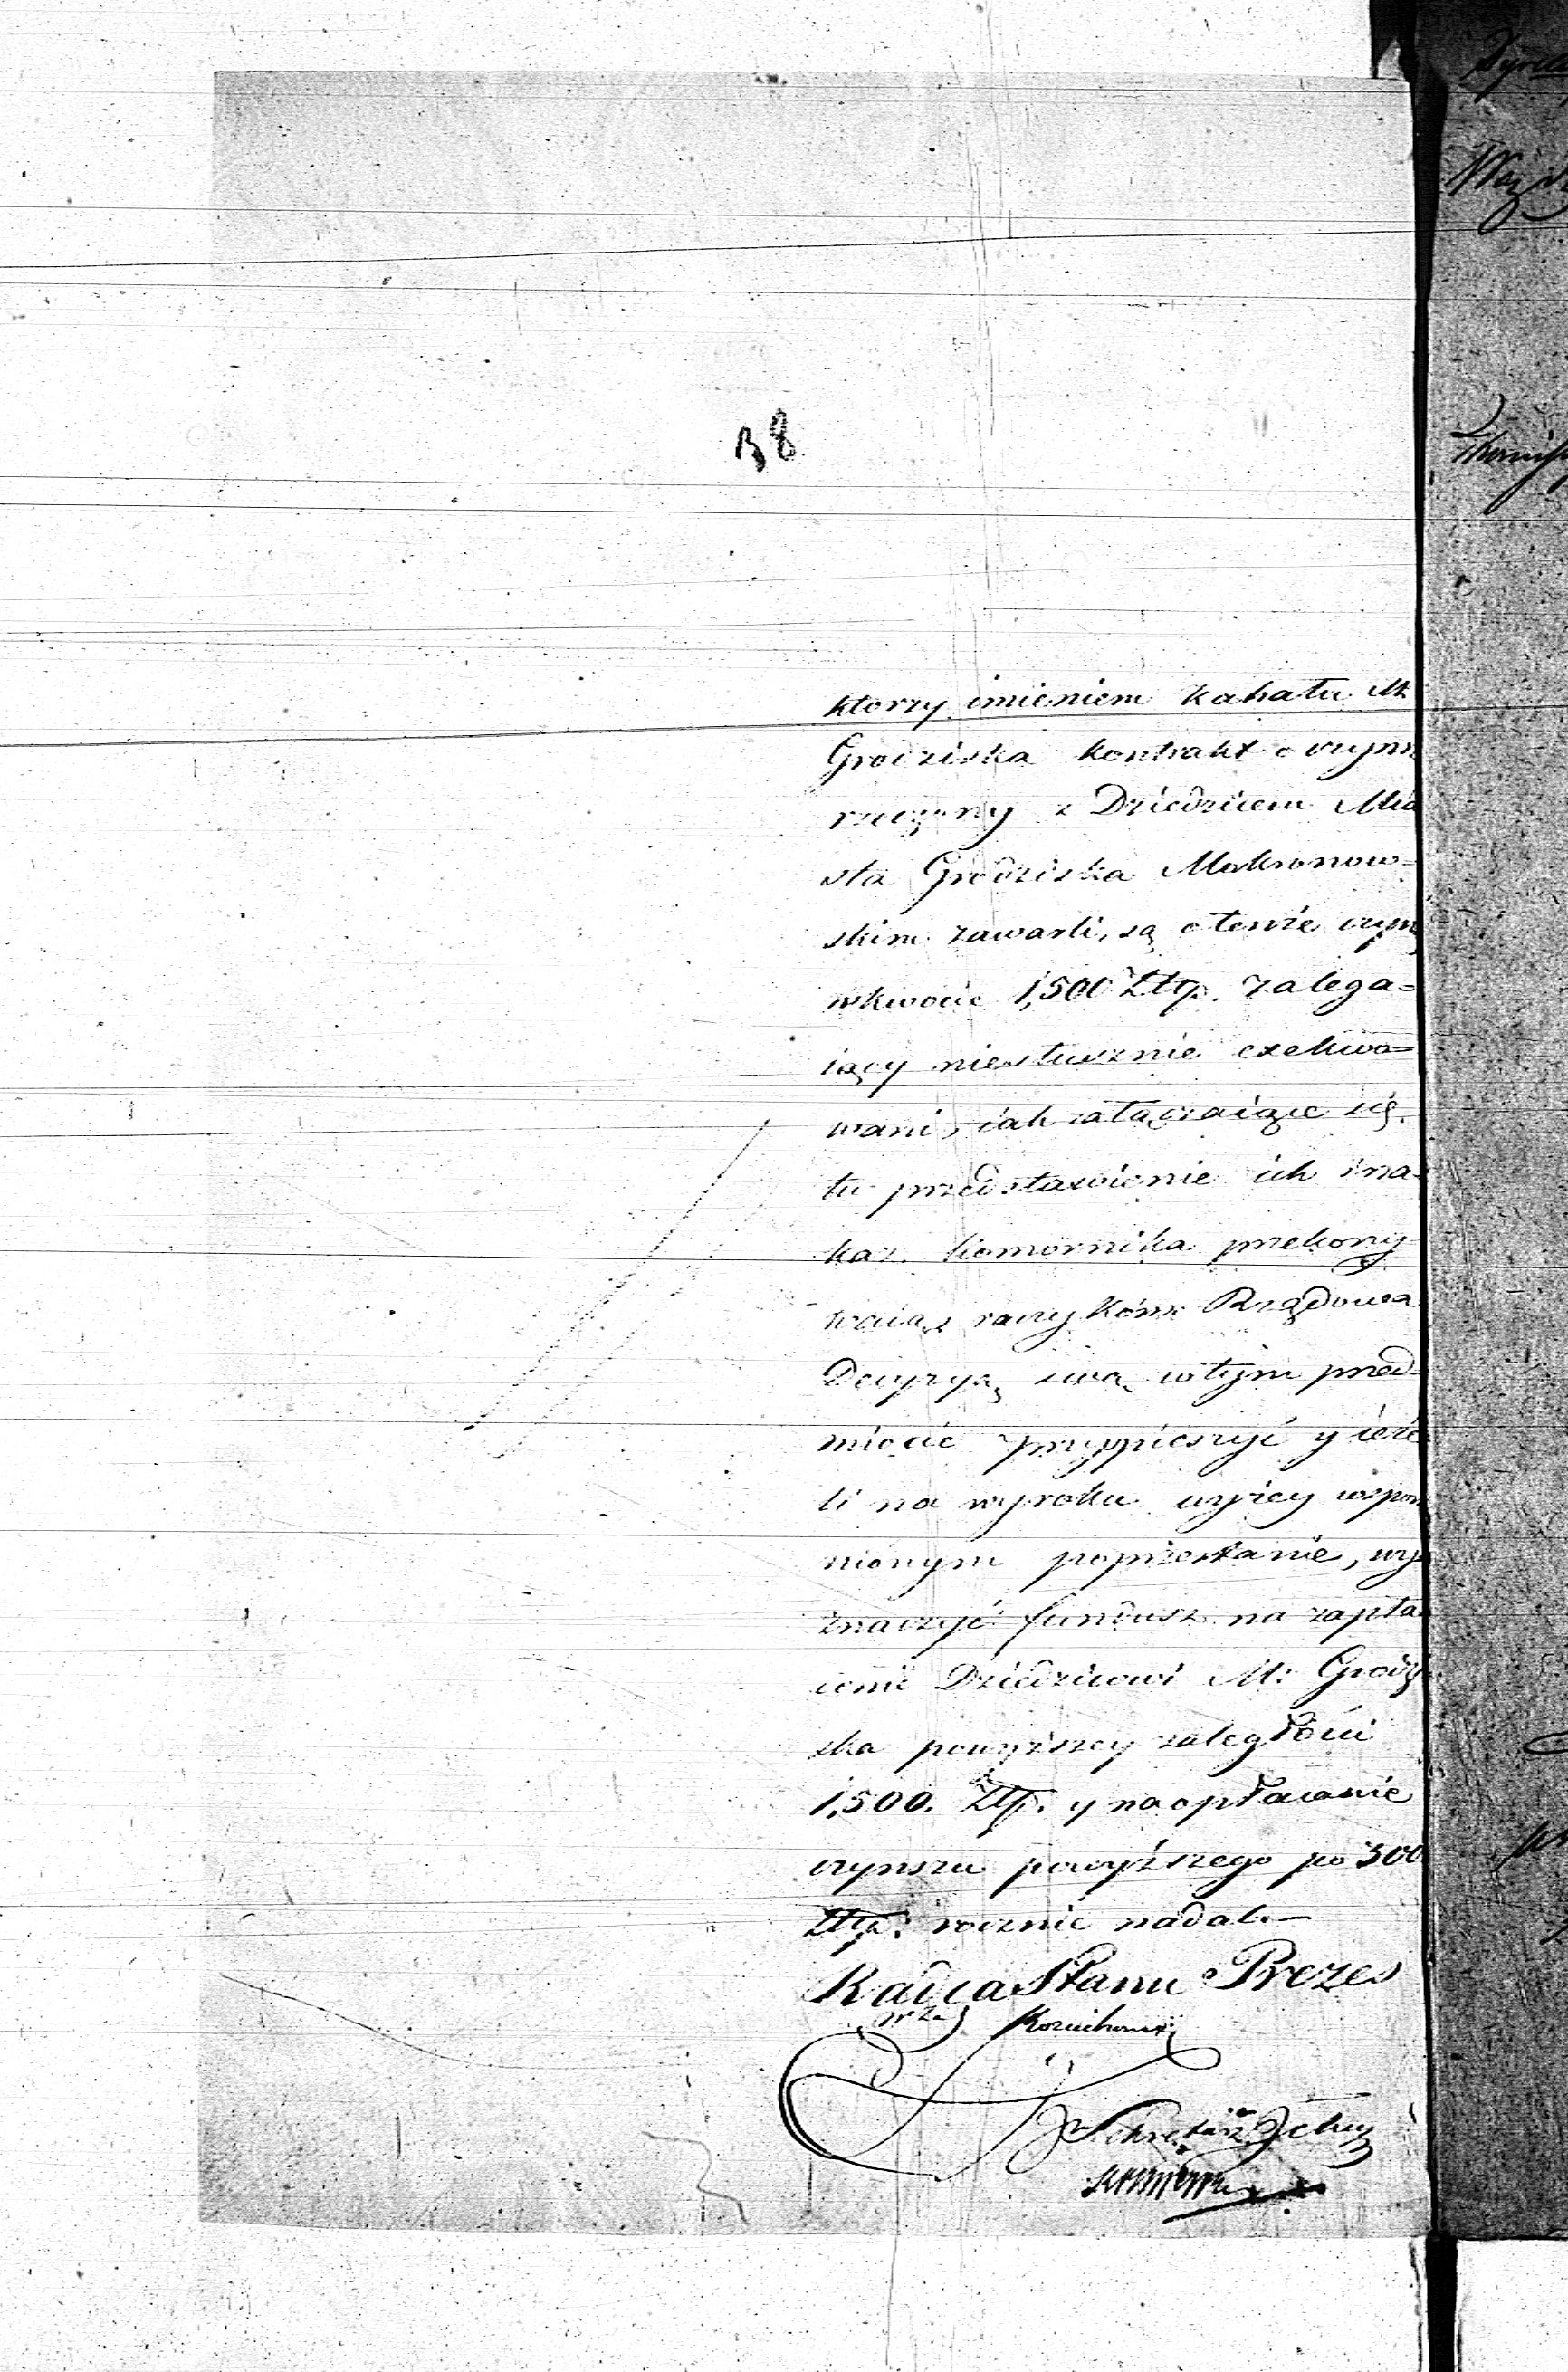 38
ktorzy imieniem kahału M.
Grodziska kontrakt o czynsz
rzeczony z Dziedzicem Mia
sta Grodziska Mokronow=
skim zawarli, są o tenże czynsz
w kwocie 1,500 Złtp. zalega=
iący niesłusznie exekwo=
wani, iak załączaiące się
tu przedstawienie ich i na=
kaz Komornika przekony
waią, raczy Kom: Rządowa
Decyzyą swą w tym przed=
miocie przyspieszyć y ieże
li na wyroku wyżey wspom
nionym poprzestanie, wy
znaczyć fundusz na zapła
cenie Dziedzicowi M: Grodzi
ska powyższey zaległości
1,500. Złtp. y na opłacanie
czynszu powyższego po 300
Złtp: rocznie nadal.—
Radca Stanu Prezes
w Z.
Sekretarz Jlny